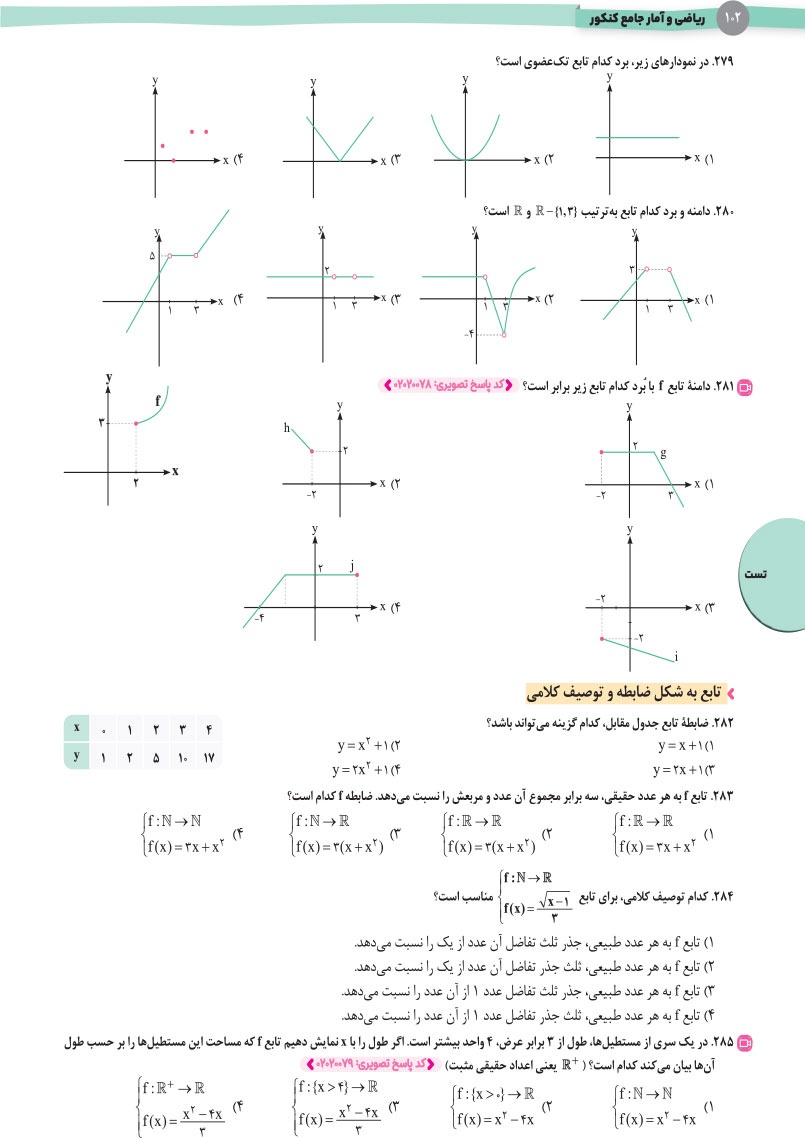 ۱۰۲ ریاضی و آمار جامع کنکور
۲۷۹. در نمودارهای زیر، برد کدام تابع تک‌عضوی است؟
۱) y x
۲) y x
۳) y x
۴) y x
۲۸۰. دامنه و برد کدام تابع به‌ترتیب ℝ − {۱, ۳} و ℝ است؟
۱) y x ۳ ۱ ۳
۲) y x ۱ ۳ −۴
۳) y x ۲ ۱ ۳
۴) y x ۵ ۱ ۳
۲۸۱. دامنهٔ تابع f با بُرد کدام تابع زیر برابر است؟ کد پاسخ تصویری: ۰۲۰۲۰۰۷۸
y f ۳ ۲ x
۱) y ۲ g −۲ ۳ x
۲) y h ۲ −۲ x
۳) y −۲ x −۲ i
۴) y ۲ j −۴ ۳ x
تست
تابع به شکل ضابطه و توصیف کلامی
۲۸۲. ضابطهٔ تابع جدول مقابل، کدام گزینه می‌تواند باشد؟
x ۰ ۱ ۲ ۳ ۴
y ۱ ۲ ۵ ۱۰ ۱۷
۱) y = x + ۱
۲) y = x² + ۱
۳) y = ۲x + ۱
۴) y = ۲x² + ۱
۲۸۳. تابع f به هر عدد حقیقی، سه برابر مجموع آن عدد و مربعش را نسبت می‌دهد. ضابطه f کدام است؟
۱) { f : ℝ → ℝ
f(x) = ۳x + x²
۲) { f : ℝ → ℝ
f(x) = ۳(x + x²)
۳) { f : ℕ → ℝ
f(x) = ۳(x + x²)
۴) { f : ℕ → ℕ
f(x) = ۳x + x²
۲۸۴. کدام توصیف کلامی، برای تابع { f : ℕ → ℝ
f(x) = √(x − ۱) / ۳ مناسب است؟
۱) تابع f به هر عدد طبیعی، جذر ثلث تفاضل آن عدد از یک را نسبت می‌دهد.
۲) تابع f به هر عدد طبیعی، ثلث جذر تفاضل آن عدد از یک را نسبت می‌دهد.
۳) تابع f به هر عدد طبیعی، جذر ثلث تفاضل عدد ۱ از آن عدد را نسبت می‌دهد.
۴) تابع f به هر عدد طبیعی، ثلث جذر تفاضل عدد ۱ از آن عدد را نسبت می‌دهد.
۲۸۵. در یک سری از مستطیل‌ها، طول از ۳ برابر عرض، ۴ واحد بیشتر است. اگر طول را با x نمایش دهیم تابع f که مساحت این مستطیل‌ها را بر حسب طول
آن‌ها بیان می‌کند کدام است؟ ( ℝ⁺ یعنی اعداد حقیقی مثبت) کد پاسخ تصویری: ۰۲۰۲۰۰۷۹
۱) { f : ℕ → ℕ
f(x) = x² − ۴x
۲) { f : {x > ۰} → ℝ
f(x) = x² − ۴x
۳) { f : {x > ۴} → ℝ
f(x) = (x² − ۴x) / ۳
۴) { f : ℝ⁺ → ℝ
f(x) = (x² − ۴x) / ۳